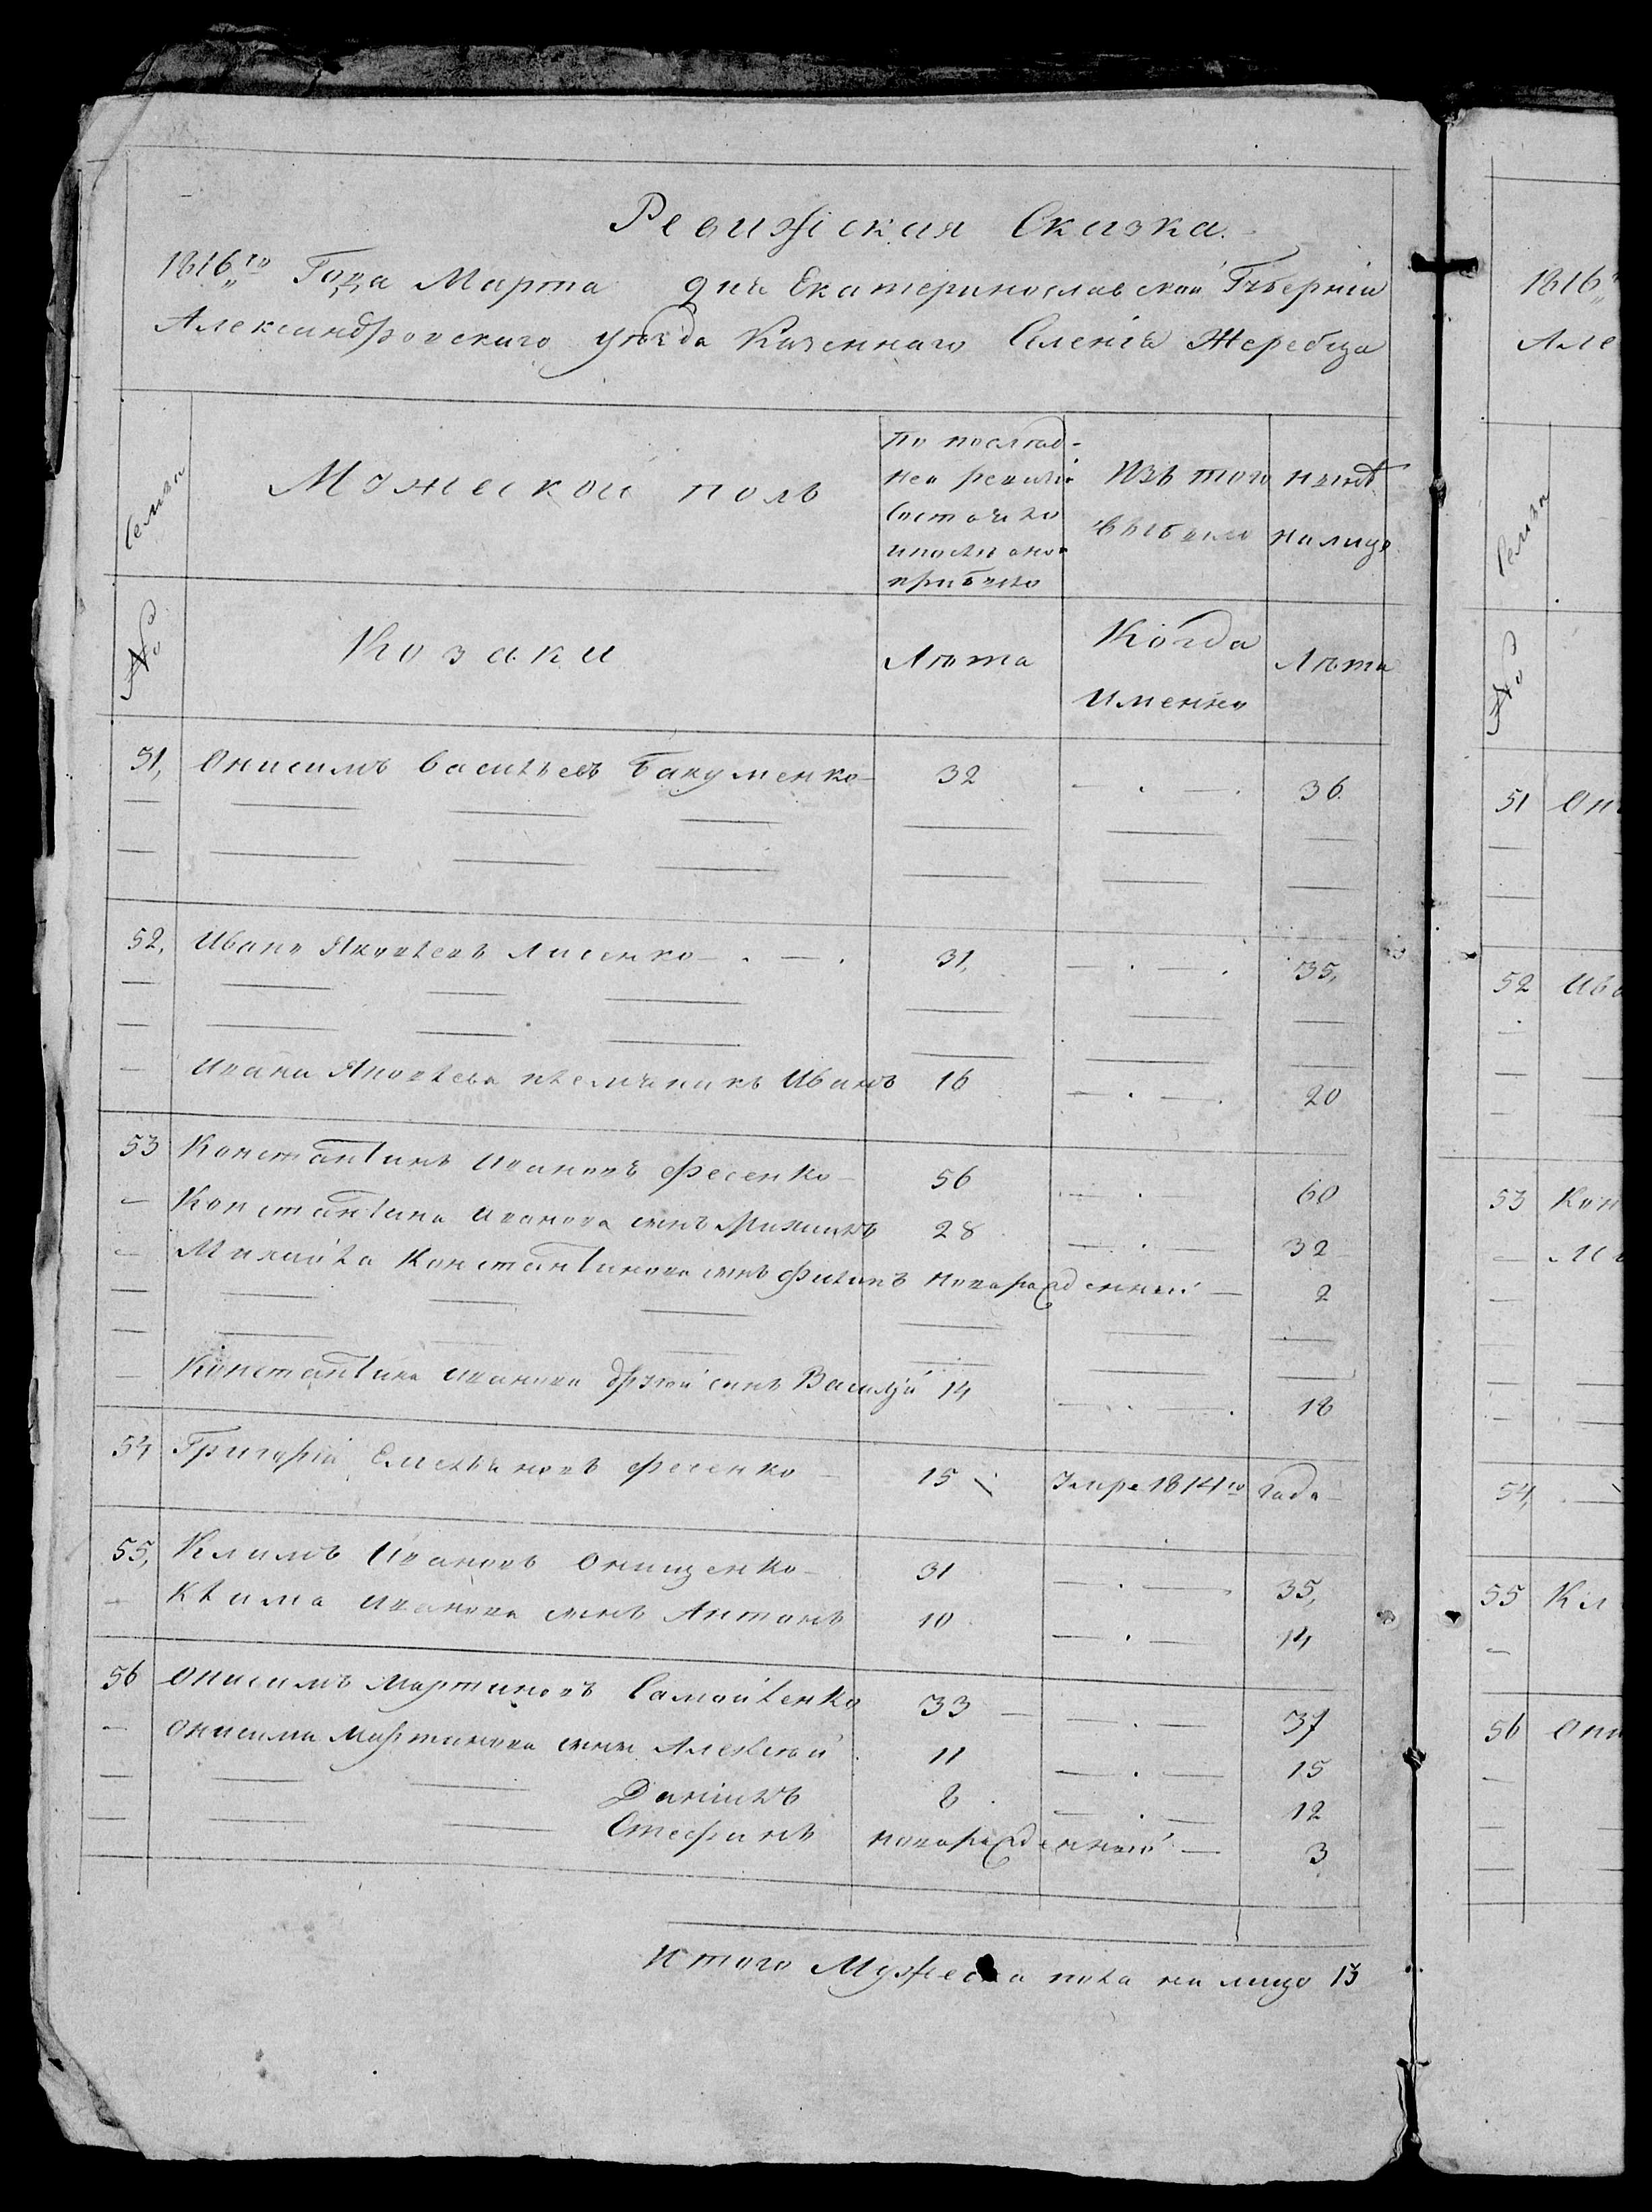 Ревижская Сказка.
1816го Года Марта дня Екатеринославской Гȣбернiи
Александровскаго уѣзда Казеннаго Селенiя Жеребца
Семьи
Мужескои полъ
По послѣд-
ней ревизiи
Состояло
и после оной
прибыло
Изъ того
выбыло
нынѣ
налицо
№
Козаки
Лѣта
Когда
Именно
Лѣта
51, Онисимъ Васильевъ Бакуменко 32 36.
52, Иванъ Яковлевъ Лисенко 31, 35,
Ивана Яковлева племяникъ Иванъ 16 20
53 Константинъ Ивановъ Фесенко 56 60
Константина Иванова сынъ Михайлъ 28 32
Михайла Константинова сынъ Филипъ новорожденный 2
Константина Иванова другой сынъ Василiй 14 18
54 Григорiй Емельяновъ Фесенко 15 Умре 1814го Года
55, Климъ Ивановъ Онищенко 31 35,
Клима Иванова сынъ Антонъ 10 14
56 Онисимъ Мартиновъ Самойленко 33 37
Онисима Мартинова сыны Алексѣй 11 15
Данiилъ 8 12
Стефанъ новорожденный 3
Итого Мужеска пола на лицо 13
1816
Але
Семьи
№
51 Они
52 Ива
53 Кон
Ми
54,
55 Кл
56 Они